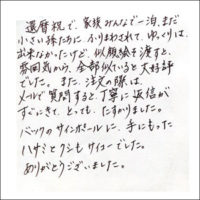 還暦祝で、家族みんなで一泊、まだ
小さい孫たちに、ふりまわされて、ゆっくりは、
出来なかったけど、似顔絵を渡すと、
雰囲気から、全部似ていると大好評
でした。また、注文の際は、
メールで質問すると、丁寧に返信が
すぐにきて、とっても、たすかりました。
バックのサインボールに、手にもった
ハサミとクシもサイコーでした。
ありがとうございました。